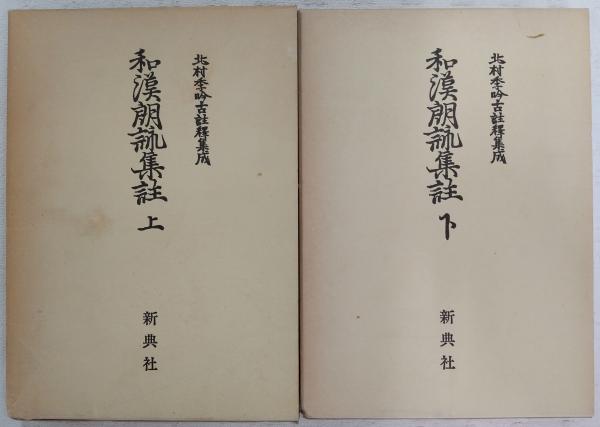 北村季吟古註釋集成
和漢朗詠集註 上
新典社
北村季吟古註釋集成
和漢朗詠集註 下
新典社